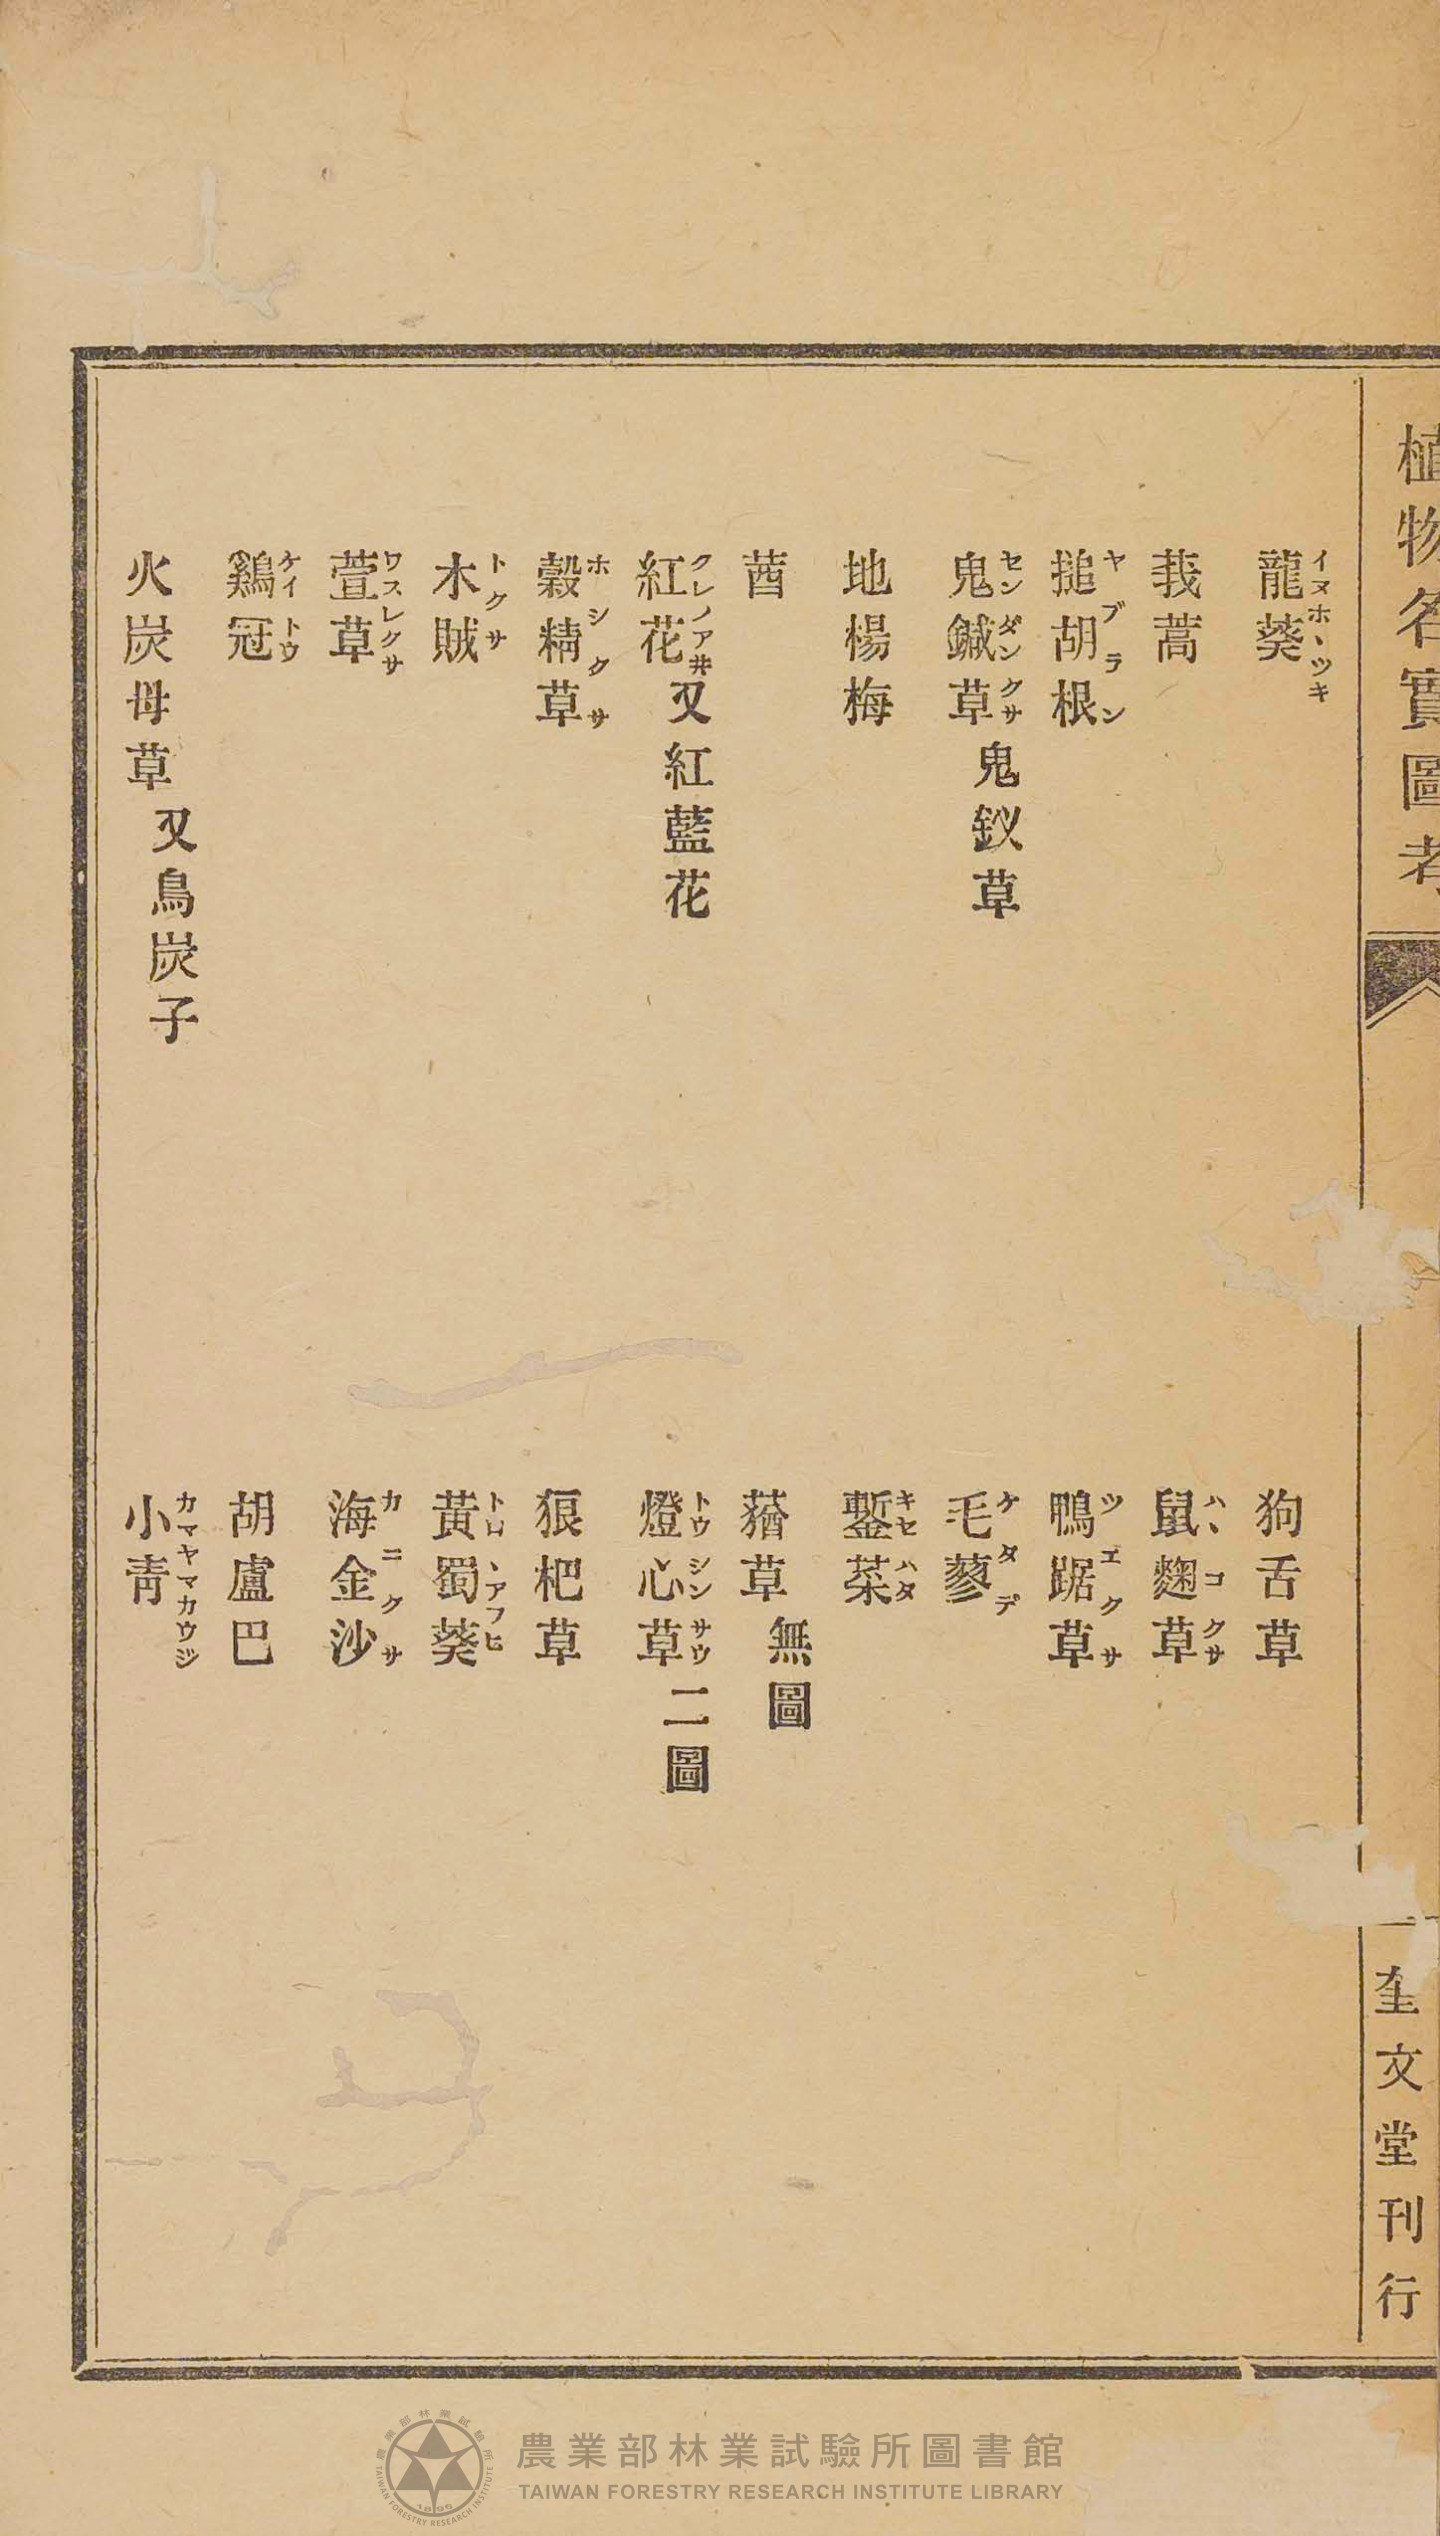 植物名實圖考
奎文堂刊行
龍葵 イヌホヽツキ
狗舌草
莪蒿
鼠麴草 ハヽコクサ
搥胡根 ヤブラン
鴨跖草 ツユクサ
鬼鍼草 センダンクサ 鬼釵草
毛蓼 ケタデ
地楊梅
鏨菜 キセハタ
莤
蕕草 無圖
紅花 クレノアヰ 又紅藍花
燈心草 トウシンサウ 二圖
穀精草 ホシクサ
狼杷草
木賊 トクサ
黃蜀葵 トロヽアフヒ
萱草 ワスレクサ
海金沙 カニクサ
鷄冠 ケイトウ
胡盧巴
火炭母草 又烏炭子
小靑 カマヤマカウジ
農業部林業試驗所圖書館
TAIWAN FORESTRY RESEARCH INSTITUTE LIBRARY
農業部林業試驗所
TAIWAN FORESTRY RESEARCH INSTITUTE
1895